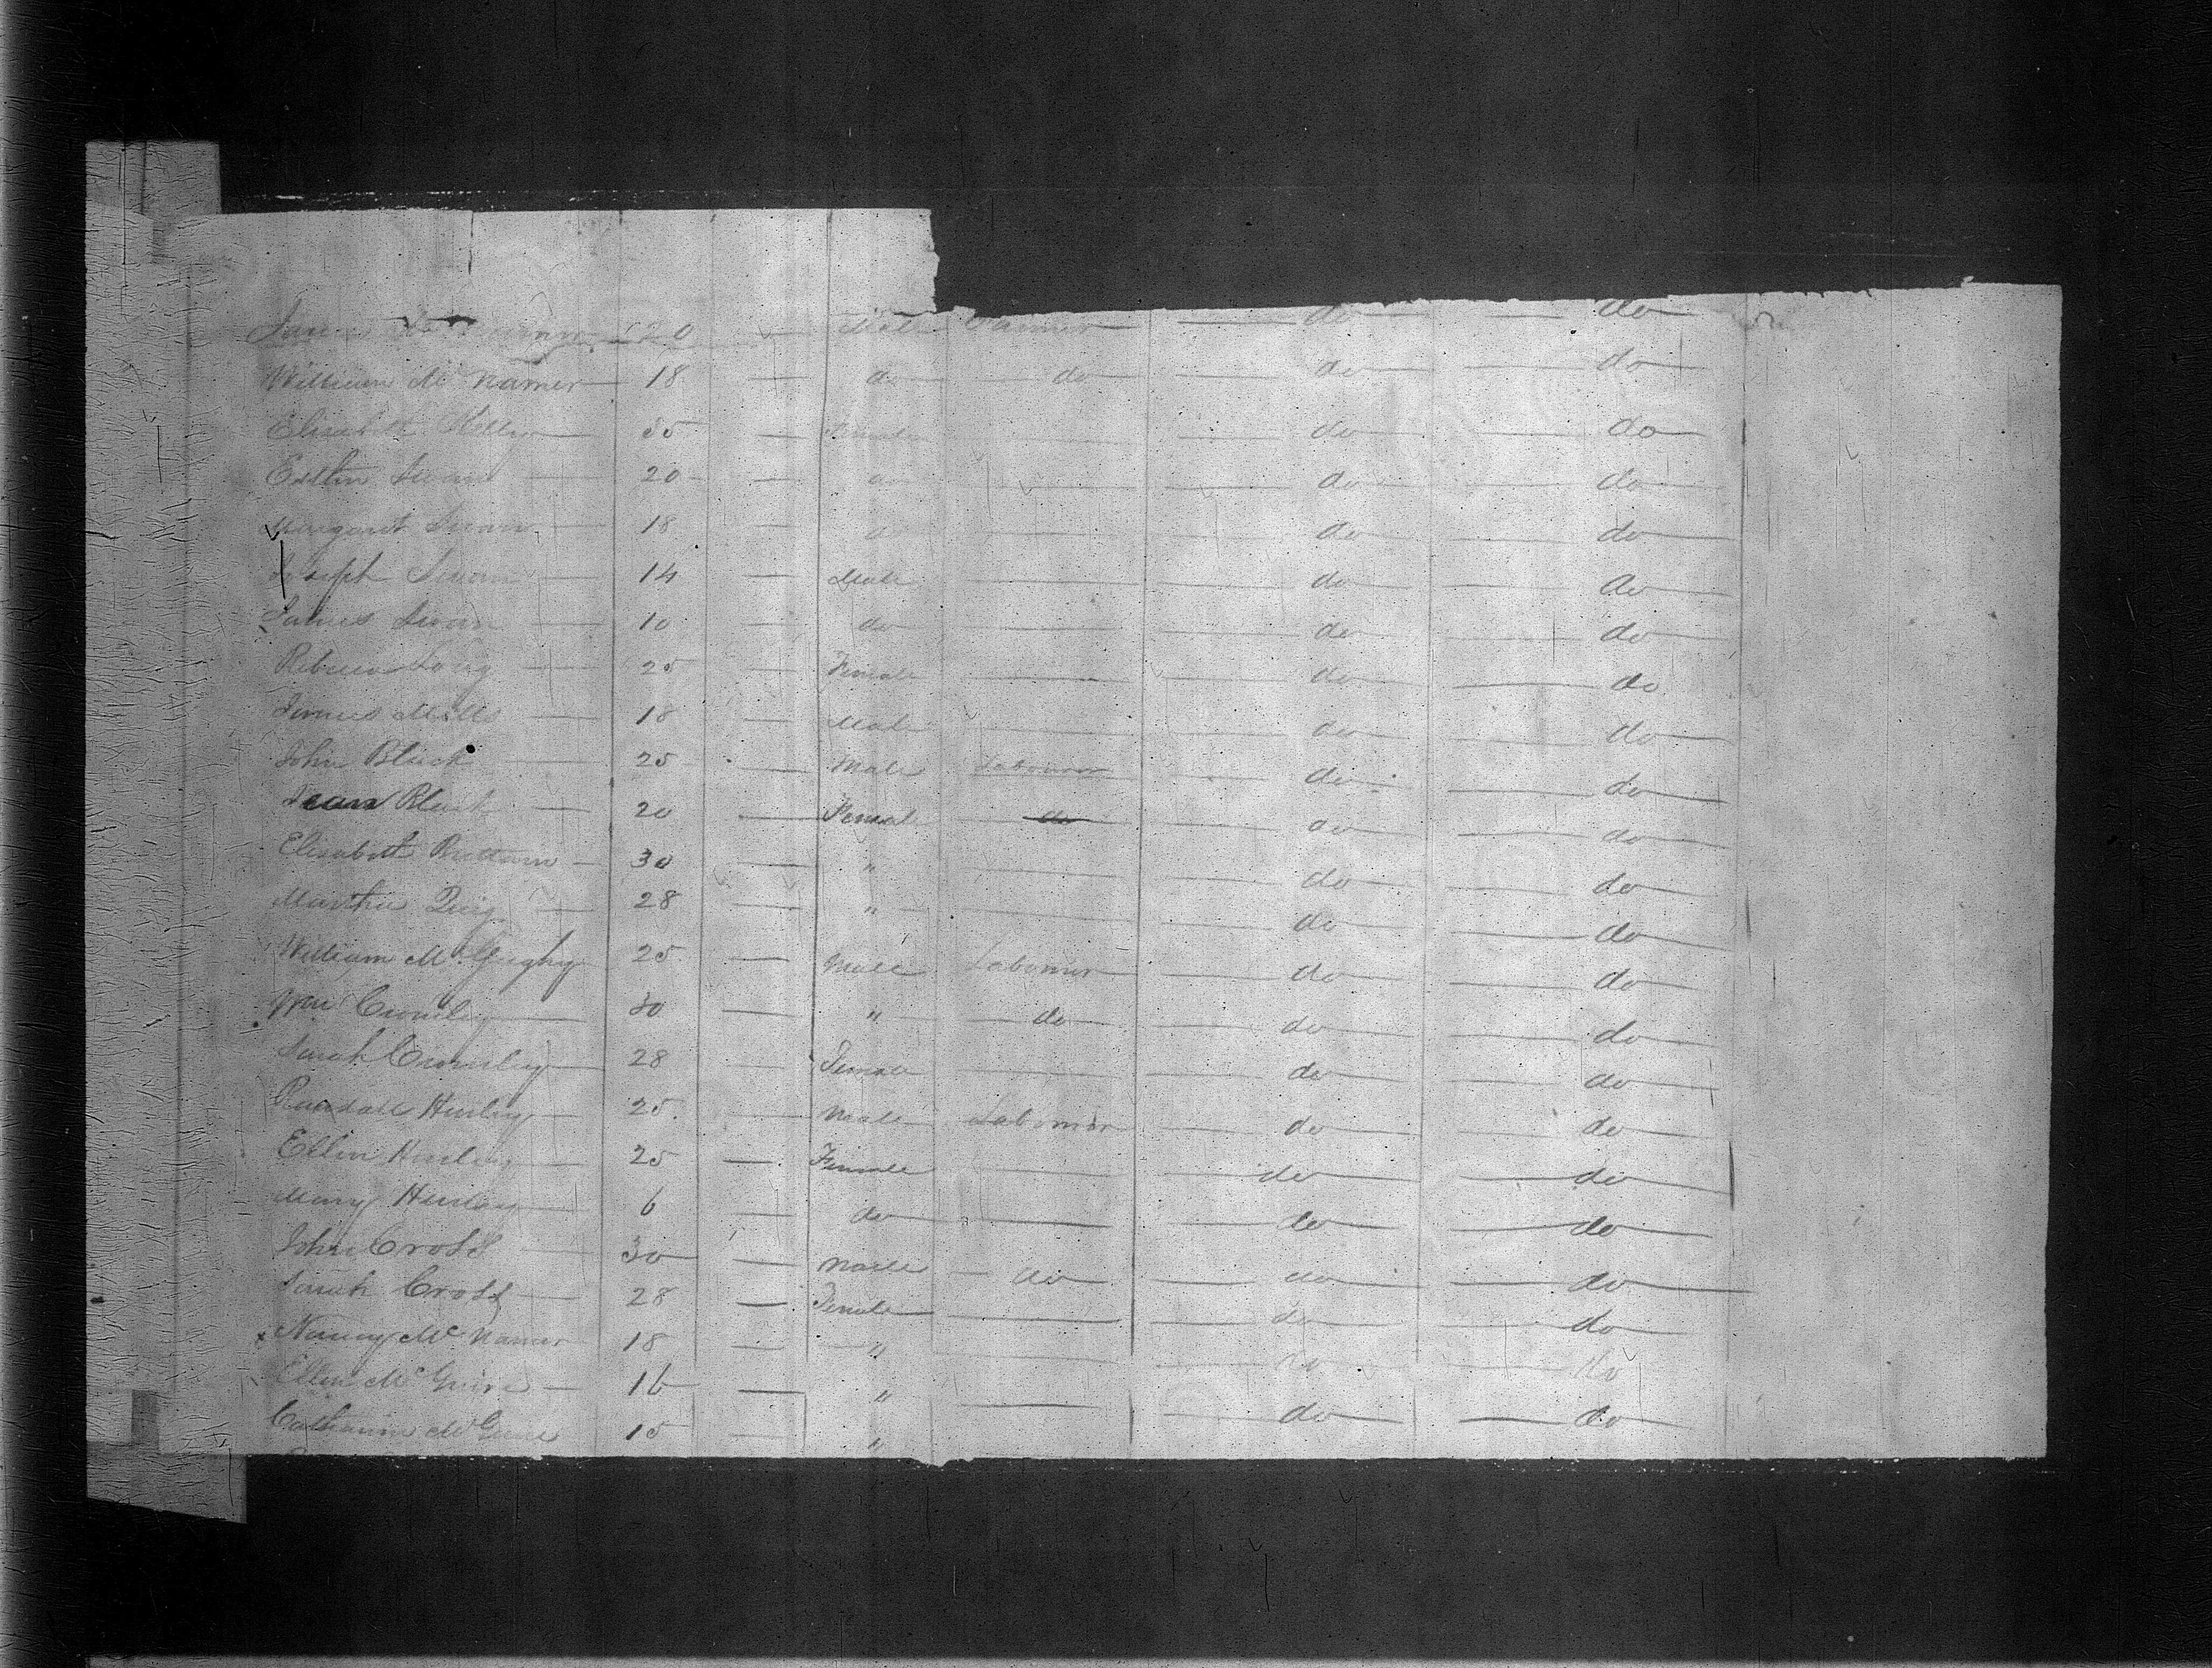 James 20 Male Farmer do do
William Mc Namer 18 do do do do
Elisabeth Kelly 35 Female do do
Ellin Swan 20 do do do
Margaret Swan 18 do do do
Joseph Swan 14 Male do do
James Swan 10 do do do
Rebecca Long 25 Female do do
James Mills 18 Male do do
John Black 25 Male Labourer do do
Jean Black 20 Femal do do do
Elisabeth 30 " do do
Martha Quig 28 " do do
William Mc 25 Male Labourer do do
Wm Cromley 30 " do do do
Sarah Cromley 28 Female do do
Randall Hurley 25 Male Labourer do do
Ellin Hurley 25 Female do do
Mary Hurley 6 do do do
John Cross 30 Male do do do
Sarah Cross 28 Female do do
Nancy Mc Namer 18 " do do
Ellin Mc Guire 16 " do do
Catharine Mc Guire 15 "